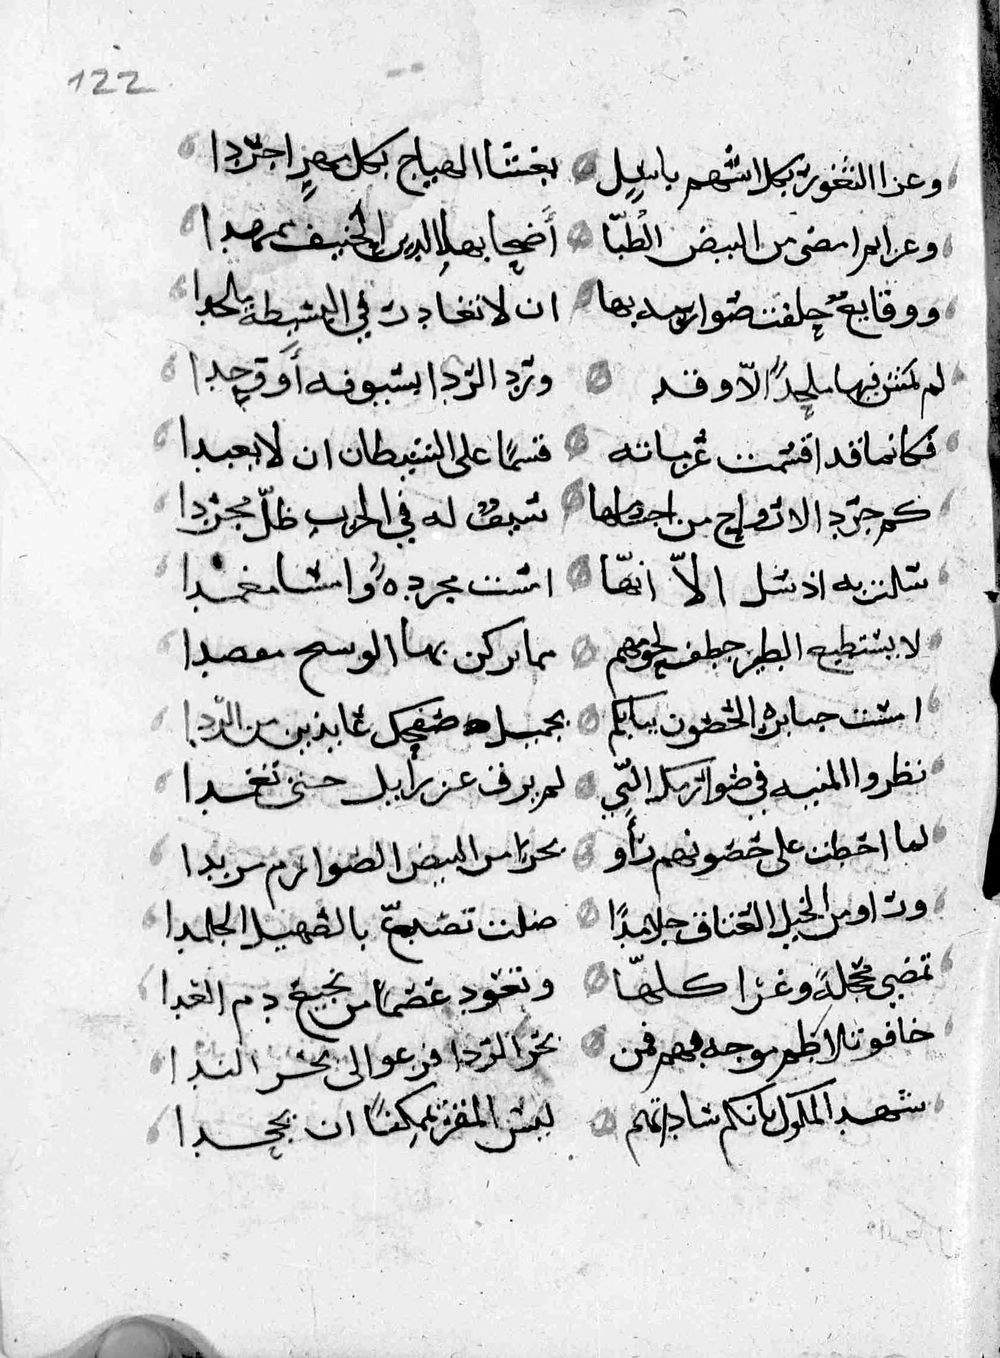 122
وغزا الثغور بكل اشهم باسل يغشا الهياج بكل مهر اجردا
وعزايم امضى من البيض الظبا أضحا بها الدين الحنيف ممهدا
ووقايع حلفت صوارمه بها ان لا تغادر في البسيطة ملحدا
لم تمس فيها ملحدا الا وقد ورد الردا بسيوفه أو وحدا
فكانما قد اقسمت عزماته قسما على الشيطان ان لا يعبدا
كم جرد الارواح من اجسامها سيف له في الحرب ظل مجردا
سلت به اذ سل الا انها امست مجردة وامسا مغمدا
لا يستطيع الطير خطف لحومهم مما تركن بها الوسيح مقصدا
امست جبابرة الحصون ببابكم بجميل صفحك عايذين من الردا
نظروا المنية في صوارمك التي لم يرق عزرايل حتى تغمدا
لما احطت على حصونهم رأو بحرا من البيض الصوارم مزبدا
وراو من الخيل العتاق جلامدا ضلت تصدع بالصهيل الجلمدا
تمضي محجلة وغرا كلها وتعود غصما من نجيع دم العدا
خافو تلاطم موجه فيهم فمن بحر الردا فزعو الى بحر الندا
شهد الملوك بانكم ساداتهم ليس المقر بممكنا ان يجحدا